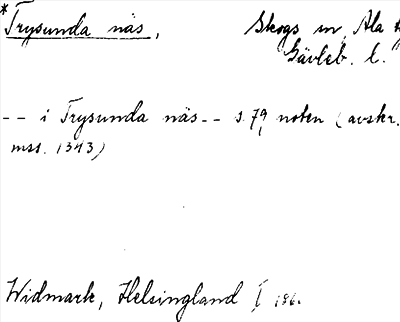 *Trysunda näs, Skogs sn, Ala h
Gävleb. l.
-- i Trysunda näs -- s. 79, noten (avskr.
mss. 1343)
Widmark, Helsingland I 186.